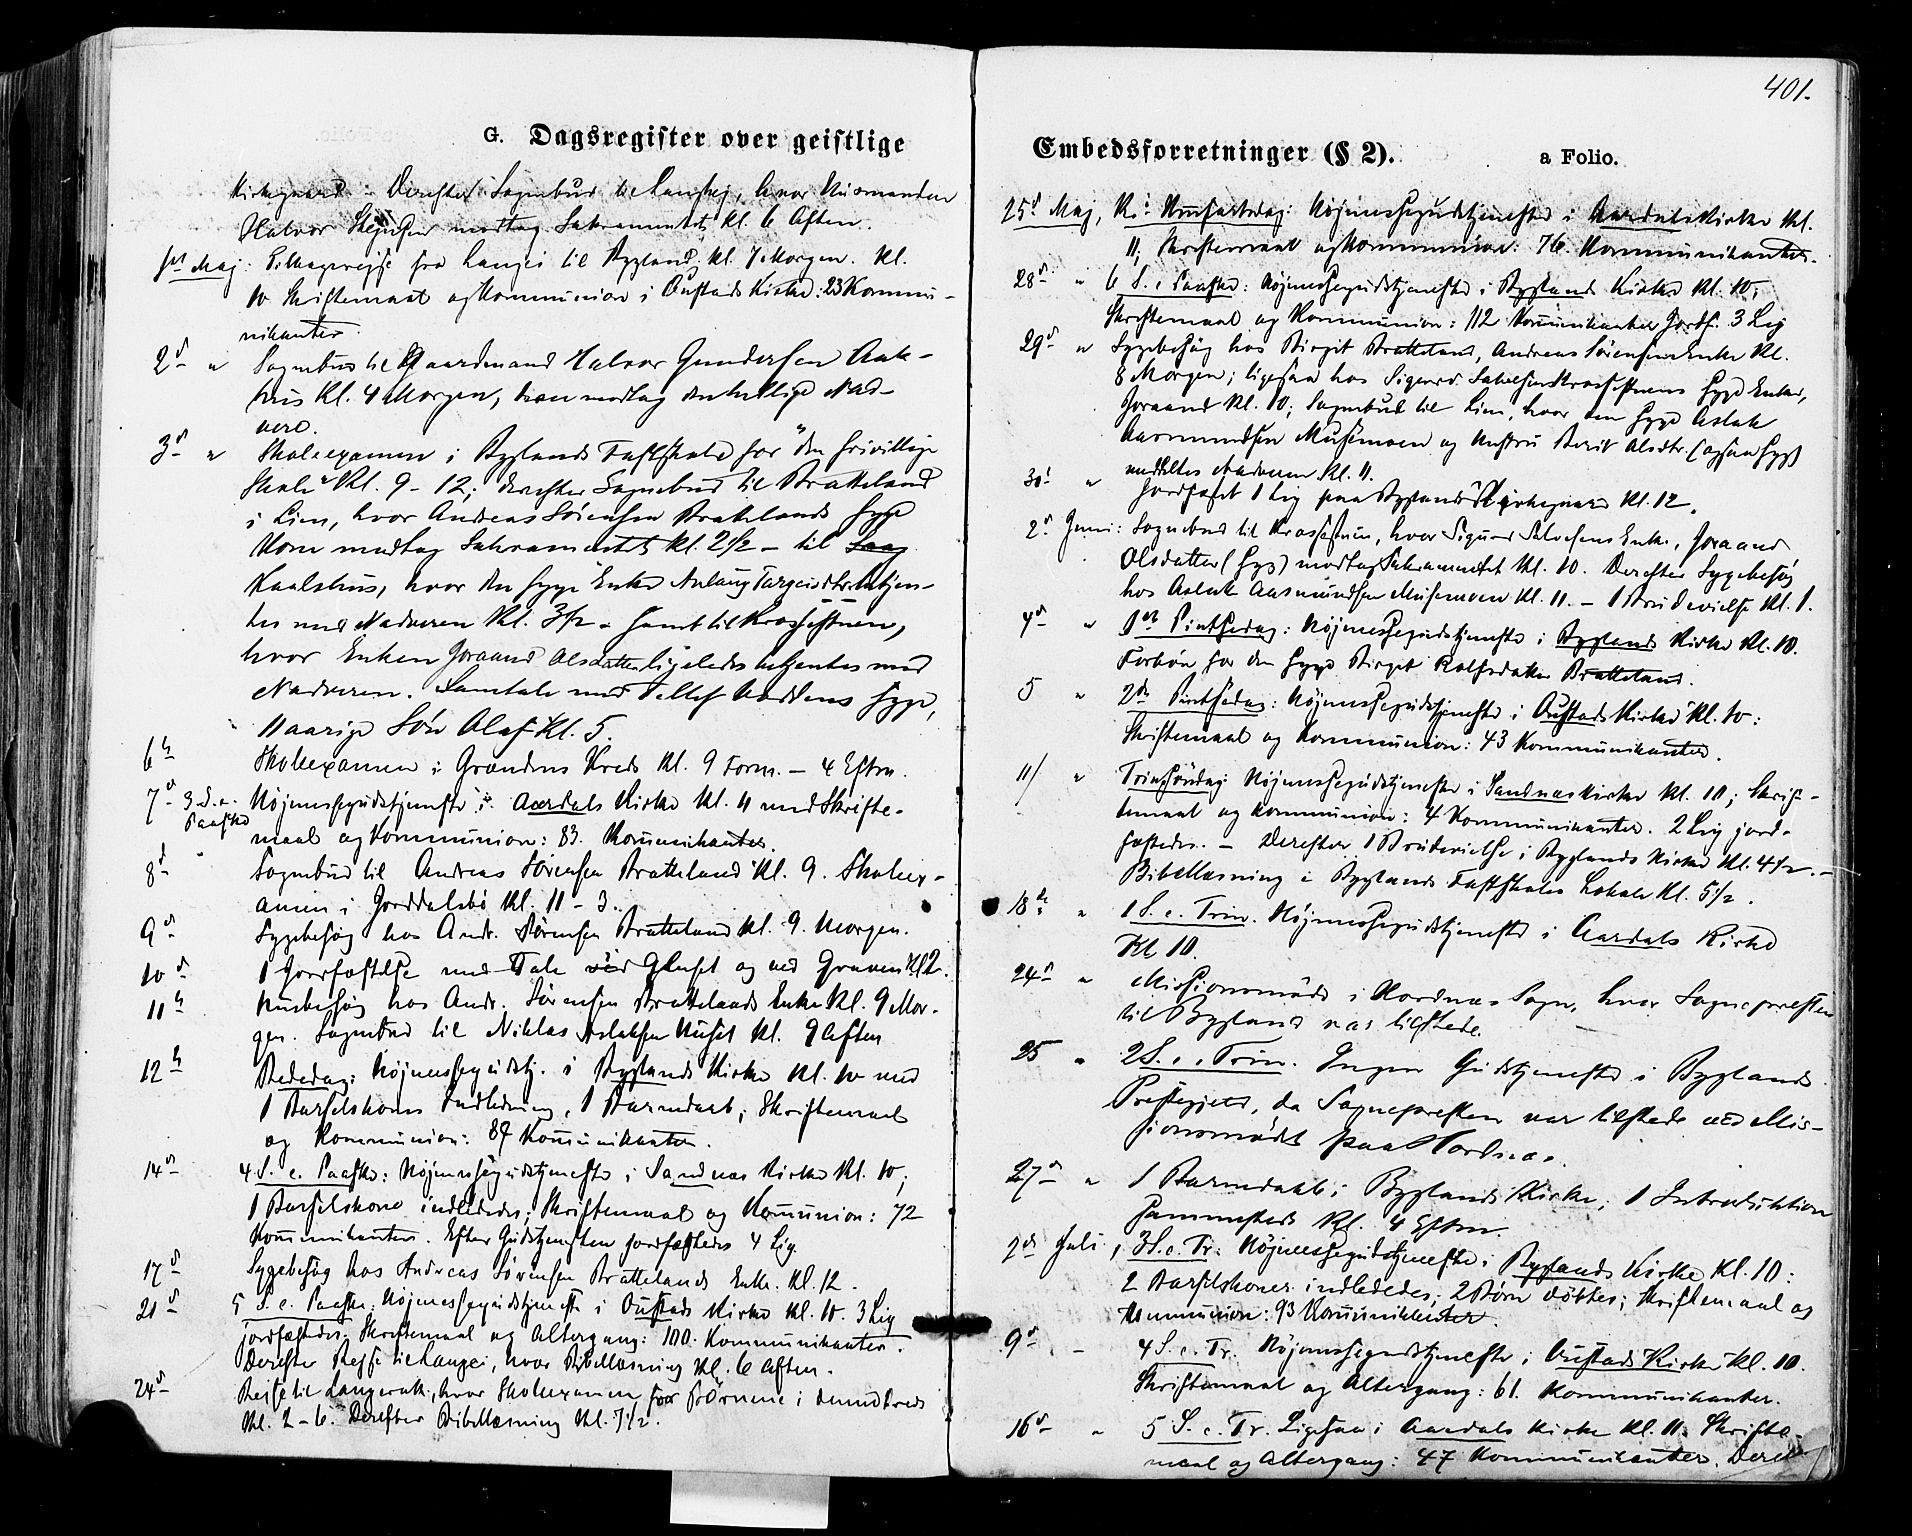 401.
G. Dagsregister over geistlige
Kirkegaard. Derefter Sognebud til Langej, hvor Husmanden
Halvor modtog Sakramentet Kl. 6 Aften.
Maj: Tilbagereise fra Langei til Bygland Kl. 7 Morgen. Kl.
10 Skriftemaal og Kommunion i Austads Kirke: 23 Kommu-
nikanter.
2d " Sognebud til Gaardmand Halvor Gundersen Aak-
hus Kl. 4 Morgen, han modtog den hellige Nad-
vere.
3d " Skoleexamen i Byglands Fastskole for "den frivillige
Skole" Kl. 9 - 12; derefter Sognebud til Bratteland
i Lien, hvor Andreas Sørensen Brattelands syge
Kone modtog Sakramentet Kl. 2 1/2 - til
Kaalshus, hvor den syge Enke Aslaug Targeisdtr. betjen-
tes med Nadveren Kl. 3 1/2 - samt til Krossestuen,
hvor Enken Joraand Olsdatter ligeledes betjentes med
Nadveren. Samtale med Tellef Haddens syge,
11aarige Søn Olaf Kl. 5.
6te Skoleexamen i Grændens Kreds Kl. 9 Form. - 4 Eftm.
7d 3 S. e. Paaske Højmessegudstjeneste i Aardals Kirke Kl. 11 med Skrifte-
maal og Kommunion: 83 Kommunikanter.
8d " Sognebud til Andreas Sørensen Bratteland Kl. 9. Skoleex-
amen i Jorddalsbø Kl. 11 - 3.
9d Sygebesøg hos Andr. Sørensen Bratteland Kl. 9 Morgen.
10d 1 Jordfæstelse med Tale ved Huset og ved Graven Kl 2.
11te Husbesøg hos Andr. Sørensen Brattelands Enke Kl. 9 Mor-
gen. Sognebud til Niklas Aslaksen Huset Kl. 9 Aften
12te Bededag: Højmessegudstj. i Byglands Kirke Kl. 10 med
1 Barselskones Indledning, 1 Barnedaab; Skriftemaal
og Kommunion: 87 Kommunikanter.
14d 4 S. e. Paaske: Højmessegudstjeneste i Sandnæs Kirke Kl. 10;
1 Barselskone indlededes; Skriftemaal og Kommunion: 72
Kommunikanter. Efter Gudstjenesten jordfæstedes 4 Lig.
17d Sygebesøg hos Andreas Sørensen Brattelands Enke Kl. 12.
21d 5 S. e. Paaske: Højmessegudstjeneste i Austads Kirke Kl. 10. 3 Lig
jordfæstedes. Skriftemaal og Altergang: 100 Kommunikanter.
Derefter Rejse til Langei, hvor Bibellæsning Kl. 6 Aften.
24d Reise til Langerak, hvor Skoleexamen for Børnene i denne Kreds
Kl. 2 - 6. Derefter Bibellæsning Kl. 7 1/2.
Embedsforretninger (§ 2). a Folio.
25d Maj, Kr. Himfartsdag: Højmessegudstjeneste i Aardals Kirke Kl.
11, Skriftemaal og Kommunion: 76 Kommunikanter.
28d " 6 S. e. Paaske: Højmessegudstjeneste i Byglands Kirke Kl. 10;
Skriftemaal og Kommunion: 112 Kommunikanter Jordf. 3 Lig
29d " Sygebesøg hos Birgit Bratteland, Andreas Sørensens Enke Kl.
8 Morgen; ligesaa hos Sigurd Salvesen Krossestuens syge Enke,
Joraand Kl. 10; Sognebud til Lien, hvor den syge Aslak
Aasmundsen Musemoen og Hustru Berit Olsdtr. (ogsaa syg)
meddeltes Nadveren Kl. 11.
30d " Jordfæstet 1 Lig paa Byglands Kirkegaard Kl. 12.
2d Juni: Sognebud til Krossestuen, hvor Sigurd Salvesens Enke, Joraand
Olsdatter (syg) modtog Sakramentet Kl. 10. Derefter Sygebesøg
hos Aslak Aasmundsen Musemoen Kl. 11. - 1 Brudevielse Kl. 1.
4d " 1ste Pintsedag: Højmessegudstjeneste i Byglands Kirke Kl. 10.
Forbøn for den syge Birgit Rolfsdatter Bratteland.
5 " 2den Pintsedag: Højmessegudstjeneste i Austads Kirke Kl. 10:
Skriftemaal og Kommunion: 43 Kommunikanter.
11/ " Trin. Søndag: Højmessegudstjeneste i Sandnæs Kirke Kl. 10; Skrif-
temaal og Kommunion: 4 Kommunikanter. 2 Lig jord-
fæstedes. - Derefter 1 Brudevielse i Byglands Kirke Kl. 4 1/2. -
Bibellæsning i Byglands Fastskoles Lokale Kl. 5 1/2.
18de " 1 S. e. Trin. Højmessegudstjeneste i Aardals Kirke
Kl 10.
24d " Missionsmøde i Hordnæs Sogn, hvor Sognepresten
til Bygland var tilstede.
25 " 2 S. e. Trin. Ingen Gudstjeneste i Byglands
Prestegjeld, da Sognepresten var tilstede ved Mis-
sionsmødet paa Hordnæs.
27d " 1 Barnedaab i Byglands Kirke; 1 Introduktion
sammesteds Kl. 4 Eftm.
2den Juli, 3 S. e. Tr: Højmessegudstjeneste i Byglands Kirke Kl. 10:
2 Barselskoner indlededes; 2 Børn døbtes; Skriftemaal og
Kommunion: 93 Kommunikanter.
9d - 4 S. e. Tr. Højmessegudstjeneste i Austads Kirke Kl. 10.
Skriftemaal og Altergang: 61 Kommunikanter.
16d " 5 S. e. Tr. Ligesaa i Aardals Kirke Kl. 11. Skrifte-
maal og Altergang: 47 Kommunikanter. Deref